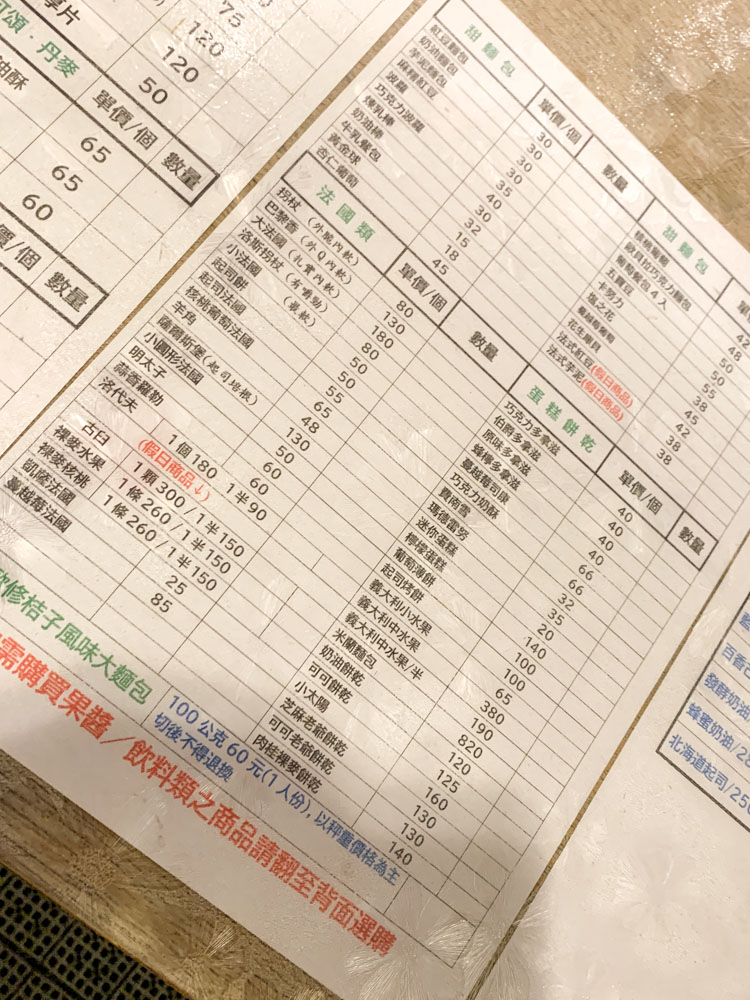 厚片
75
120
120
50
可頌．丹麥
單價/個
數量
油酥
65
65
60
價/個
數量
甜麵包
單價/個
數量
紅豆麵包 30
奶油麵包 30
芋泥麵包 30
麻糬紅豆 35
波羅 40
巧克力波羅 30
煉乳棒 32
奶油棒 15
牛乳餐包 18
黃金球 45
杏仁葡萄
法國類
單價/個
數量
拐杖(外脆內軟) 80
巴黎香(外Q內軟) 130
大法國(扎實內軟) 180
洛斯拐杖(有嚼勁) 80
小法國(最軟) 50
起司餅 50
起司法國 55
核桃葡萄法國 65
羊角 48
薩爾斯堡(起司培根) 130
小圓形法國 50
明太子 60
蒜香羅勒 60
洛代夫 1個180 1半90
(假日商品↓)
古臼 1顆300/1半150
裸麥水果 1條260/1半150
裸麥核桃 1條260/1半150
凱薩法國 25
蔓越莓法國 85
甜麵包
葡萄餐包4入
五寶豆
卡努力
鹽之花
蔓越莓葡萄
花生扇貝
法式紅豆(假日商品)
法式芋泥(假日商品)
42
48
50
50
55
38
45
42
38
38
蛋糕餅乾
單價/個
數量
巧克力多拿滋 40
伯爵多拿滋 40
原味多拿滋 40
蜂檸多拿滋 40
蔓越莓司康 66
巧克力奶酥 66
費南雪 32
瑪德雷努 35
迷你蛋糕 20
檸檬蛋糕 140
葡萄薄餅 100
起司烤餅 100
義大利小水果 65
義大利中水果 380
義大利中水果/半 190
米蘭麵包 820
奶油餅乾 120
可可餅乾 125
小太陽 160
芝麻老爺餅乾 130
可可老爺餅乾 130
肉桂裸麥餅乾 140
修桔子風味大麵包
100公克60元(1人份)，以秤重價格為主
切後不得退換
需購買果醬／飲料類之商品請翻至背面選購
百香
發酵奶油
蜂蜜奶油/28
北海道起司/25